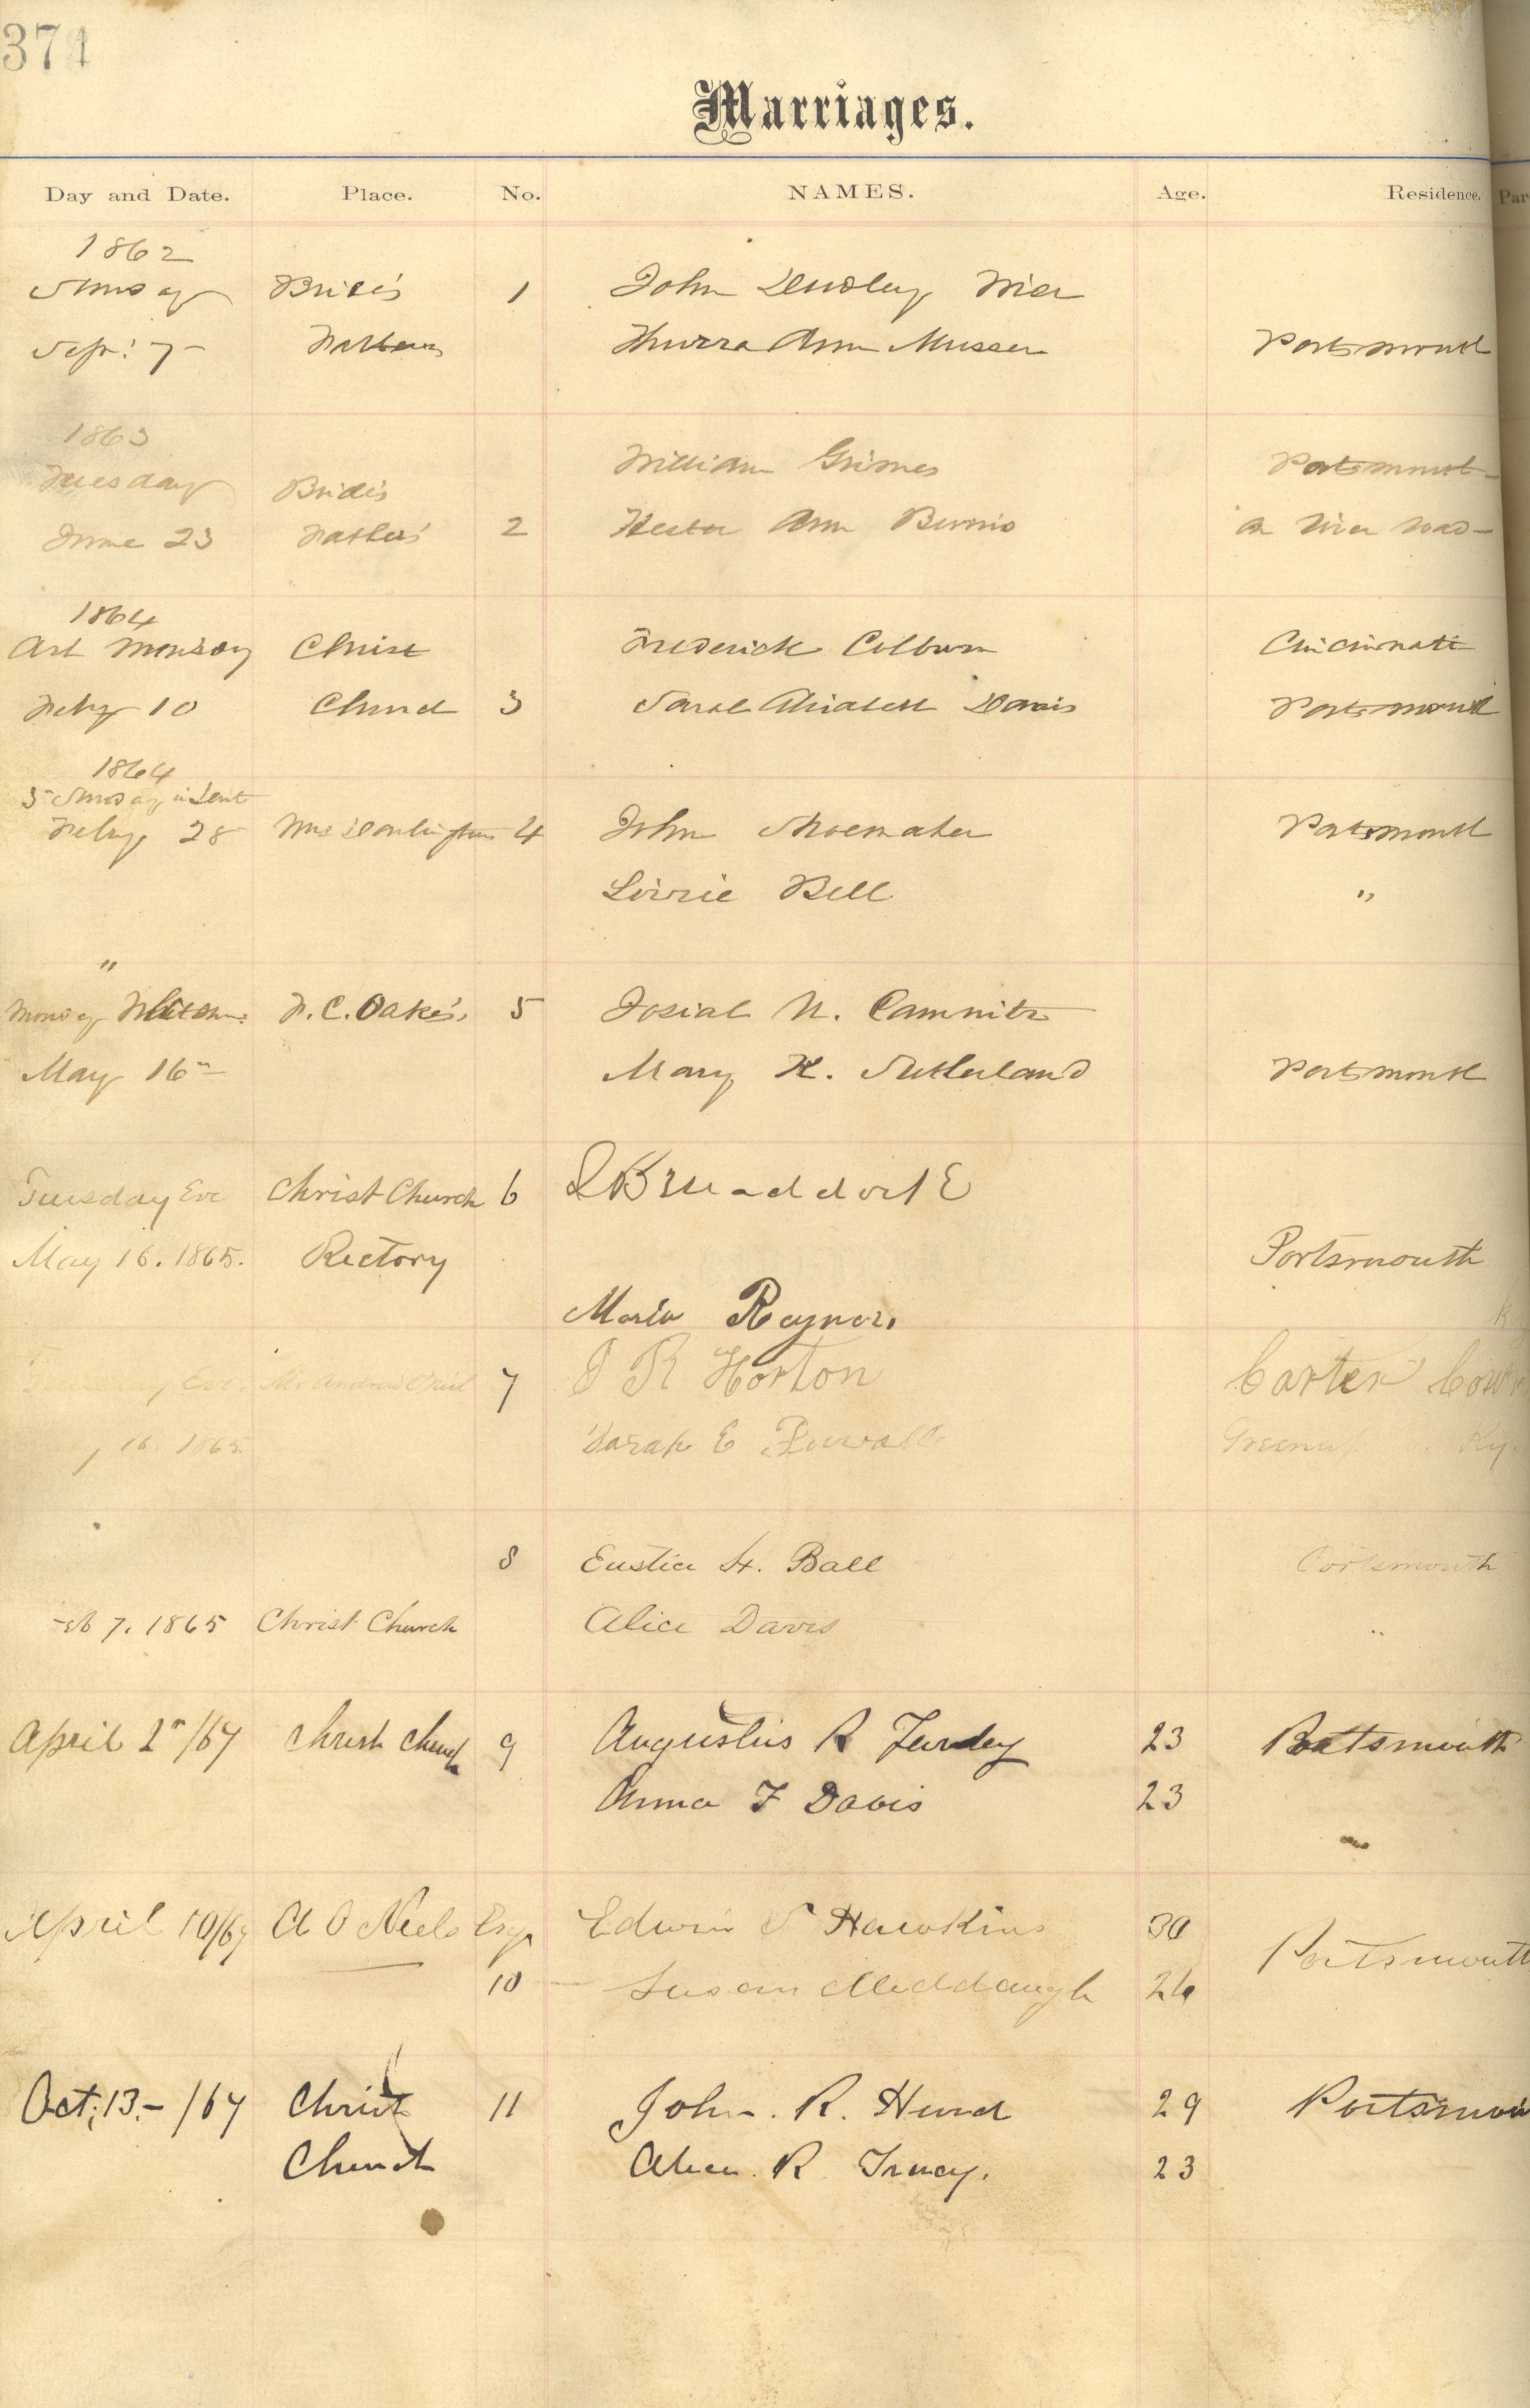 374
Marriages.
Day and Date. Place. No. NAMES. Age. Residence. Par
1862
Sunday Bride's 1 John Dudley
Sept. 7 Father's Ann Musser Portsmouth
1863
William Grimes Portsmouth
Tuesday Bride's
June 23 Father's 2 Hester Ann on River road
1864
Ash Monday Christ Frederick Colburn Cincinnati
Feby 10 Church 3 Sarah Elizabeth Davis Portsmouth
1864
Sunday in Lent
Feby 28 Mrs Darlington's 4 John Shoemaker Portsmouth
Lizzie Bell "
"
Monday Whitsun: C. Oakes. 5 Josiah N. Camnitz
May 16 Mary K. Sutherland Portsmouth
Tuesday Eve Christ Church 6
May 16. 1865. Rectory Portsmouth
Maria Raynor.
Eve Mr Andrew 7 R Horton Carter
16. 1865 Sarah E Greenup Ky.
8 H. Ball Portsmouth
7. 1865 Christ Church Alice Davis "
April /67 Christ Church 9 Augustus R 23 Portsmouth
Anna F Davis 23
April 10/67 A O Esqr Edwin S Hawkins 30 Portsmouth
10 Susan Middaugh 26
Oct; 13.- /67 Christ 11 John. R. 29
Church R. 23